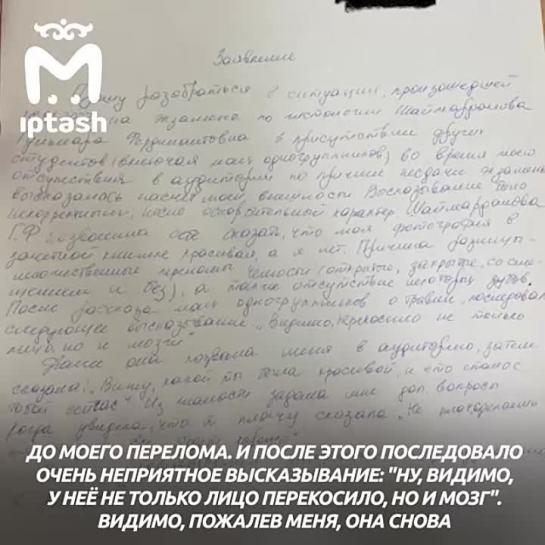 iptash
Заявление
Прошу разобраться в ситуации, произошедшей
на экзамене по гистологии Шаймарданова
Гульнара Фердинантовна в присутствии других
студентов (включая моих одногруппников) во время моего
отсутствия в аудитории по причине несдачи экзамена
высказалась насчет моей внешности. Высказывание было
некорректным, носило оскорбительный характер. Шаймарданова
Г.Ф. позволила себе сказать, что моя фотография в
зачетной книжке красивая, а я нет. Причина разницы-
множественные переломы челюсти (открытые, закрытые, со сме-
щением и без), а также отсутствие некоторых зубов.
После рассказа моих одногруппников о травме, последовало
следующее высказывание: „Видимо, перекосило не только
лицо, но и мозги"
Далее она позвала меня в аудиторию, затем
сказала: „Вижу, какой ты была красивой, и что стало с
тобой сейчас" Из жалости задала мне доп. вопросы
Когда увидела, что я плачу сказала „Не
ДО МОЕГО ПЕРЕЛОМА. И ПОСЛЕ ЭТОГО ПОСЛЕДОВАЛО
ОЧЕНЬ НЕПРИЯТНОЕ ВЫСКАЗЫВАНИЕ: "НУ, ВИДИМО,
У НЕЁ НЕ ТОЛЬКО ЛИЦО ПЕРЕКОСИЛО, НО И МОЗГ".
ВИДИМО, ПОЖАЛЕВ МЕНЯ, ОНА СНОВА